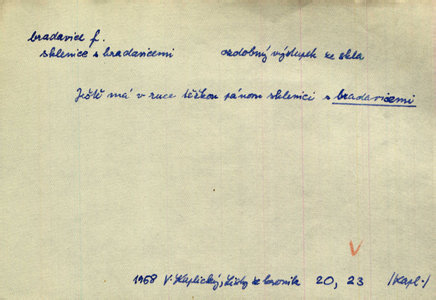 bradavice f.
sklenice s bradavicemi ozdobný výstupek ze skla
Ještě má v ruce těžkou pánom sklenici s bradavicemi
1968 V. Kaplický, Listy ze kronik 20, 23 /Kapl./